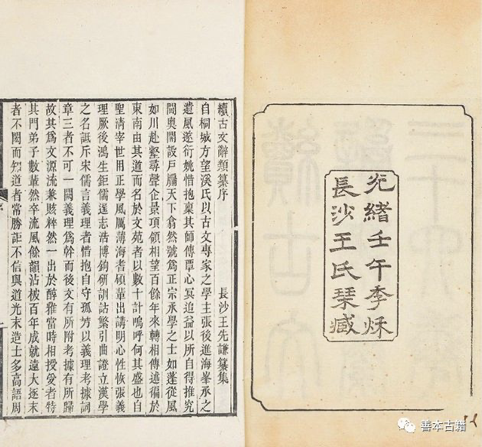 光緒壬午季秌
長沙王氏琹臧
續古文辭類纂序
長沙王先謙纂集
自桐城方望溪氏以古文專家之學主張後進海峯承之
遺風遂衍姚惜抱稟其師傳覃心冥追益以所自得推究
閫奧開設戶牖天下翕然號為正宗承學之士如蓬從風
如川赴壑尋聲企景項領相望百餘年來轉相傳述徧於
東南由其道而名於文苑者以數十計嗚呼何其盛也自
聖清宰世用正學風厲薄海耆碩輩出講明心性恢張義
理厥後鴻生鉅儒逞志浩博鉤研訓詁繁引曲證立漢學
之名詆斥宋儒言義理者惜抱自守孤芳以義理考據詞
章三者不可一闕義理為幹而後文有所附考據有所歸
故其為文源流兼賅粹然一出於醇雅當時相授受者特
其門弟子數輩然卒流風餘韻沾被百年成就遠大逐末
者不閎而知道者常勝詎不信與道光末造士多高語周
善本古籍